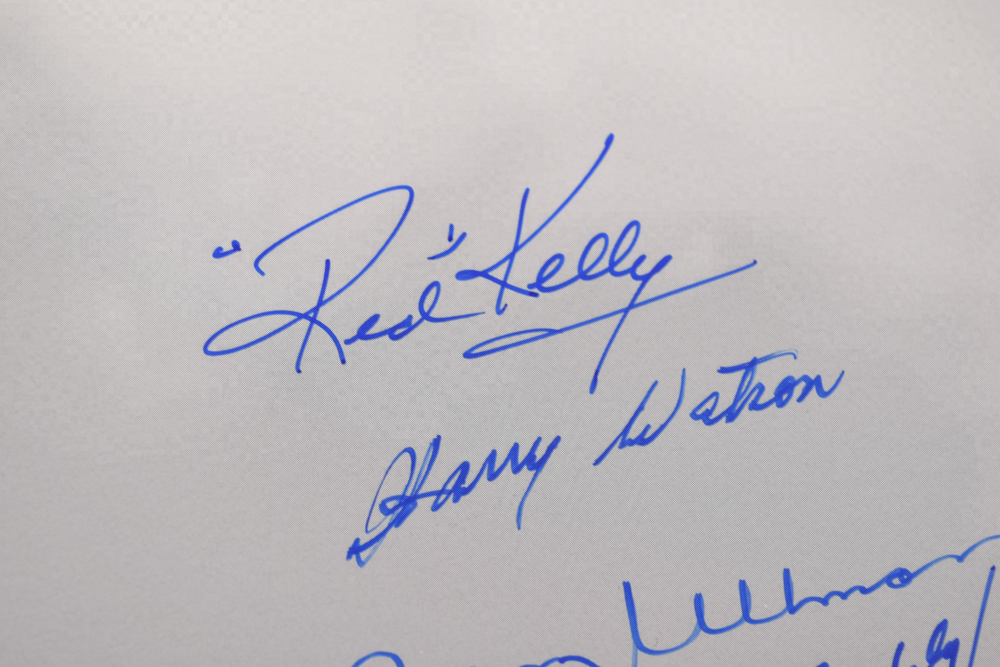 "Red" Kelly
Harry Watson
Ullman